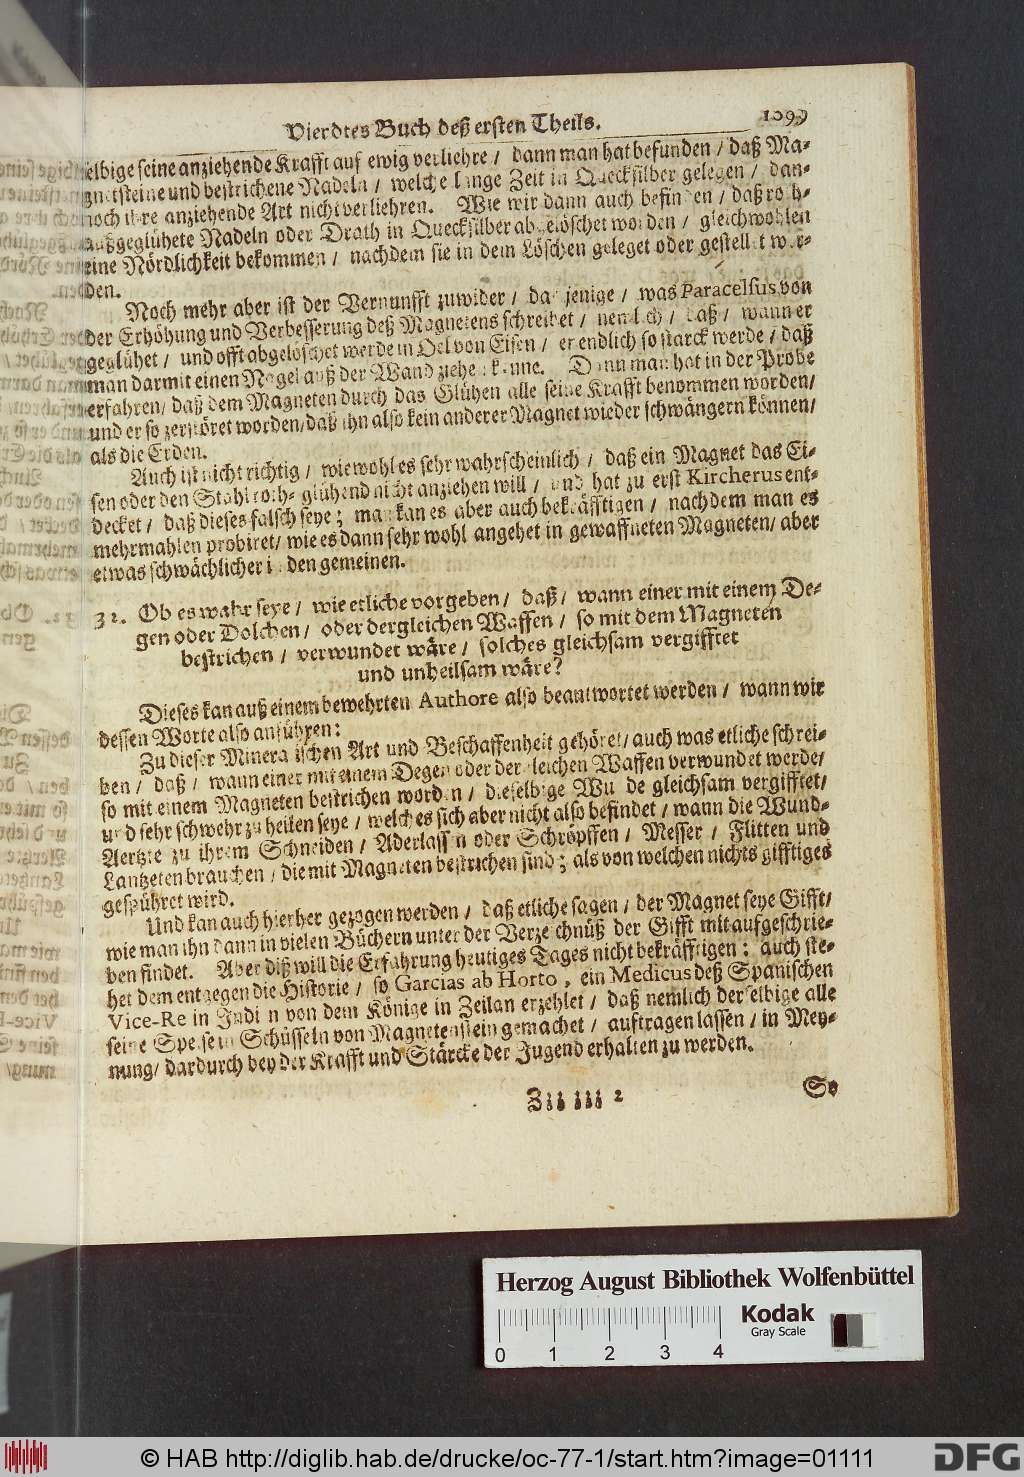 Vierdtes Buch deß ersten Theils. 1099
elbige seine anziehende Krafft auf ewig verliehre / dann man hat befunden / daß Ma-
gnetsteine und bestrichene Nadeln / welche lange Zeit in Quecksilber gelegen / dan-
noch ihre anziehende Art nicht verliehren. Wie wir dann auch befinden / daß roth-
außgeglühete Nadeln oder Drath in Quecksilber abgelöschet worden / gleichwohlen
eine Nördlichkeit bekommen / nachdem sie in dem Löschen geleget oder gestellet wor-
den.
Noch mehr aber ist der Vernunfft zuwider / dasjenige / was Paracelsus von
der Erhöhung und Verbesserung deß Magnetens schreibet / nemlich / daß / wann er
geglühet / und offt abgelöschet werde in Oel von Eisen / er endlich so starck werde / daß
man darmit einen Nagel auß der Wand ziehen könne. Dann man hat in der Probe
erfahren / daß dem Magneten durch das Glühen alle seine Krafft benommen worden /
und er so zerstöret worden / daß ihn also kein anderer Magnet wieder schwängern können /
als die Erden.
Auch ist nicht richtig / wiewohl es sehr wahrscheinlich / daß ein Magnet das Ei-
sen oder den Stahl roth-glühend nicht anziehen will / und hat zu erst Kircherus ent-
decket / daß dieses falsch seye; man kan es aber auch bekräfftigen / nachdem man es
mehrmahlen probiret / wie es dann sehr wohl angehet in gewaffneten Magneten / aber
etwas schwächlicher in den gemeinen.
32. Ob es wahr seye / wie etliche vorgeben / daß / wann einer mit einem De-
gen oder Dolchen / oder dergleichen Waffen / so mit dem Magneten
bestrichen / verwundet wäre / solches gleichsam vergifftet
und unheilsam wäre?
Dieses kan auß einem bewehrten Authore also beantwortet werden / wann wir
dessen Worte also anführen:
Zu dieser Mineralischen Art und Beschaffenheit gehöret / auch was etliche schrei-
ben / daß / wann einer mit einem Degen oder dergleichen Waffen verwundet werde /
so mit einem Magneten bestrichen worden / dieselbige Wunde gleichsam vergifftet /
und sehr schwehr zu heilen seye / welches sich aber nicht also befindet / wann die Wund-
Aertzte zu ihrem Schneiden / Aderlassen oder Schröpffen / Messer / Flitten und
Lantzeten brauchen / die mit Magneten bestrichen sind; als von welchen nichts gifftiges
gespühret wird.
Und kan auch hierher gezogen werden / daß etliche sagen / der Magnet seye Gifft /
wie man ihn dann in vielen Büchern unter der Verzeichnüß der Gifft mit aufgeschrie-
ben findet. Aber diß will die Erfahrung heutiges Tages nicht bekräfftigen: auch ste-
het dem entgegen die Historie / so Garcias ab Horto, ein Medicus deß Spanischen
Vice-Re in Indien von dem Könige in Zeilan erzehlet / daß nemlich derselbige alle
seine Speise in Schüsseln von Magnetenstein gemachet / auftragen lassen / in Mey-
nung / dardurch bey der Krafft und Stärcke der Jugend erhalten zu werden.
Zii iii 2 So
Herzog August Bibliothek Wolfenbüttel
Kodak
Gray Scale
0 1 2 3 4
© HAB http://diglib.hab.de/drucke/oc-77-1/start.htm?image=01111
DFG